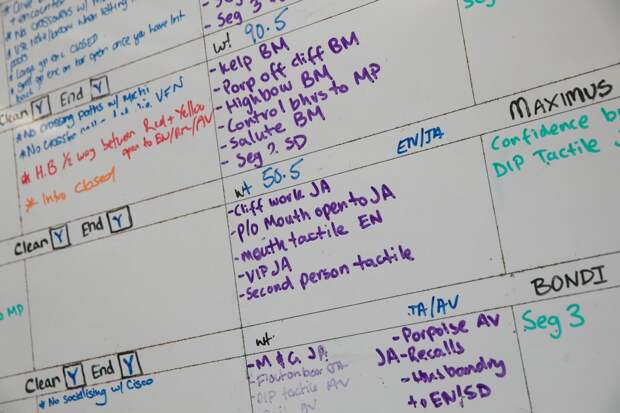 encounter
* No crossovers w/
* Use
pools
* Large go enc CLOSED
open once you have Int
Seg 3
Clean Y End Y
wt 90.5
- Kelp BM
- Porp off cliff BM
- Highbow BM
- Control bhrs to MP
- Salute BM
- Seg ? SD
* No crossing paths w/ Michi
* No VEN
* H.B ½ way between Red + Yellow
open to EN/BM/AV
* Intro Closed
Clean Y End Y
wt 50.5
EN/JA
- Cliff work JA
- P/O Mouth open to JA
- Mouth tactile EN
- VIP JA
- Second person tactile
MAXIMUS
Confidence
DIP Tactile
MP
Clean Y End Y
* No socialising w/ Cisco
wt
JA/AV
- M & G JA
JA
- DIP tactile AV
AV
- Porpoise AV
JA - Recalls
- Husbandry
to EN/SD
BONDI
Seg 3